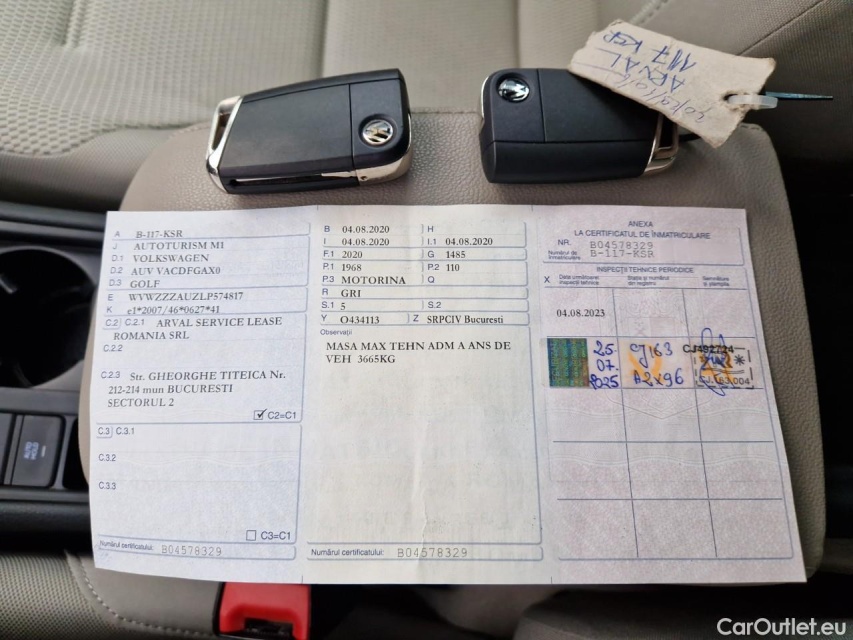 ARVAL
117 KSR
A B-117-KSR
J AUTOTURISM M1
D.1 VOLKSWAGEN
D.2 AUV VACDFGAX0
D.3 GOLF
E WVWZZZAUZLP574817
K e1*2007/46*0627*41
C.2 C.2.1 ARVAL SERVICE LEASE
ROMANIA SRL
C.2.2
C.2.3 Str. GHEORGHE TITEICA Nr.
212-214 mun BUCURESTI
SECTORUL 2
C2=C1
C.3 C.3.1
C.3.2
C.3.3
C3=C1
Numărul certificatului: B04578329
B 04.08.2020 H
I 04.08.2020 I.1 04.08.2020
F.1 2020 G 1485
P.1 1968 P.2 110
P.3 MOTORINA Q
R GRI
S.1 5 S.2
Y O434113 Z SRPCIV Bucuresti
Observaţii
MASA MAX TEHN ADM A ANS DE
VEH 3665KG
Numărul certificatului: B04578329
ANEXA
LA CERTIFICATUL DE ÎNMATRICULARE
NR. B04578329
Numărul de înmatriculare B-117-KSR
INSPECŢII TEHNICE PERIODICE
X Data următoarei inspecţii tehnice
Staţia şi numărul din registru
Semnătura şi ştampila
04.08.2023
25. CJ163 CJ492724
07.
2025 A2x96 CJ.163.004
AUTO HOLD
CarOutlet.eu